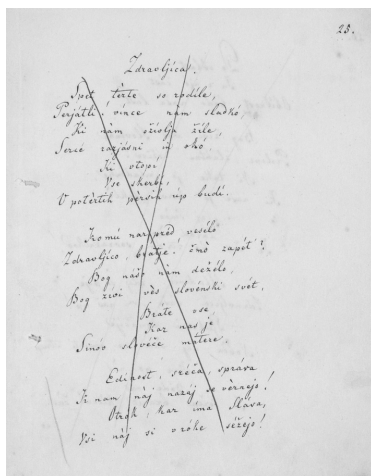 25.
Zdravljica.
Spet tèrte so rodile,
Perjátli! vince nam sladkó,
Ki nam oživlja žile,
Serce razjásni in okó.
Ki otopi
Vse skerbi,
V potèrtih persih úp budi.
Komú nar pred veselo
Zdravljico, bratje! čmò zapét'?
Bog našo nam deželo,
Bog živi ves slovénski svét,
Brate vse
Kar nas je
Sinóv slovéče matere.
Edinost, sréča, správa
K nam naj nazáj se vèrnejo!
Otrók, kar ima Sláva,
Vsi náj si v róke séžejo!